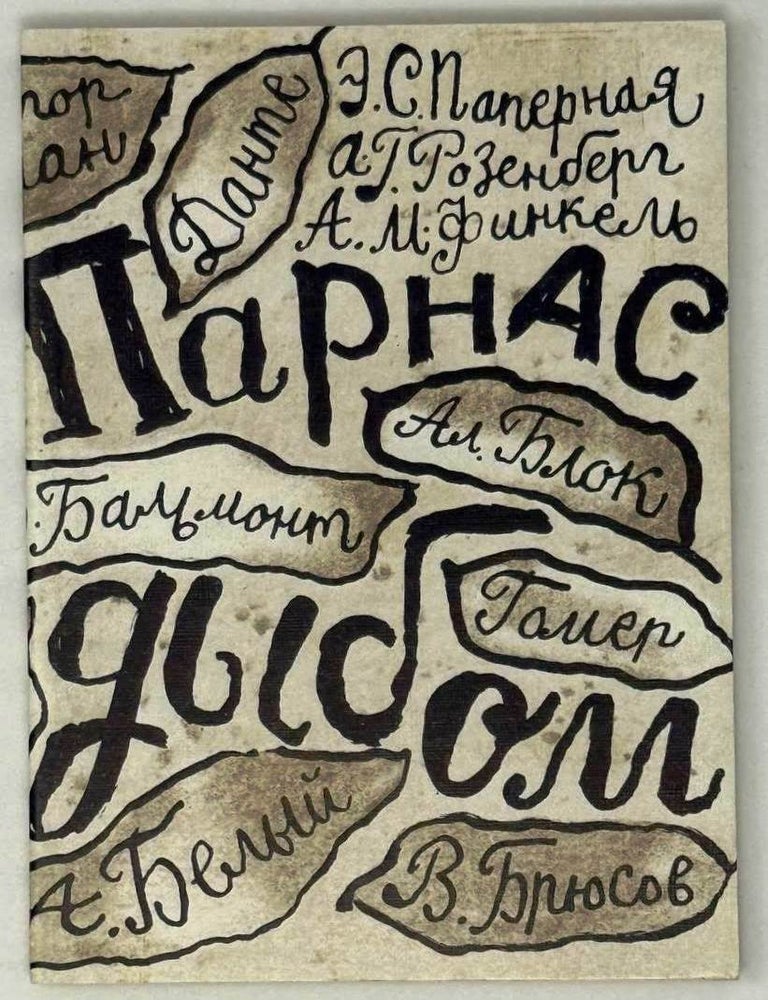 Э.С. Паперная
А.Г. Розенберг
А.М. Финкель
Данте
Парнас
Ал. Блок
Бальмонт
дыбом
Гомер
А. Белый
В. Брюсов